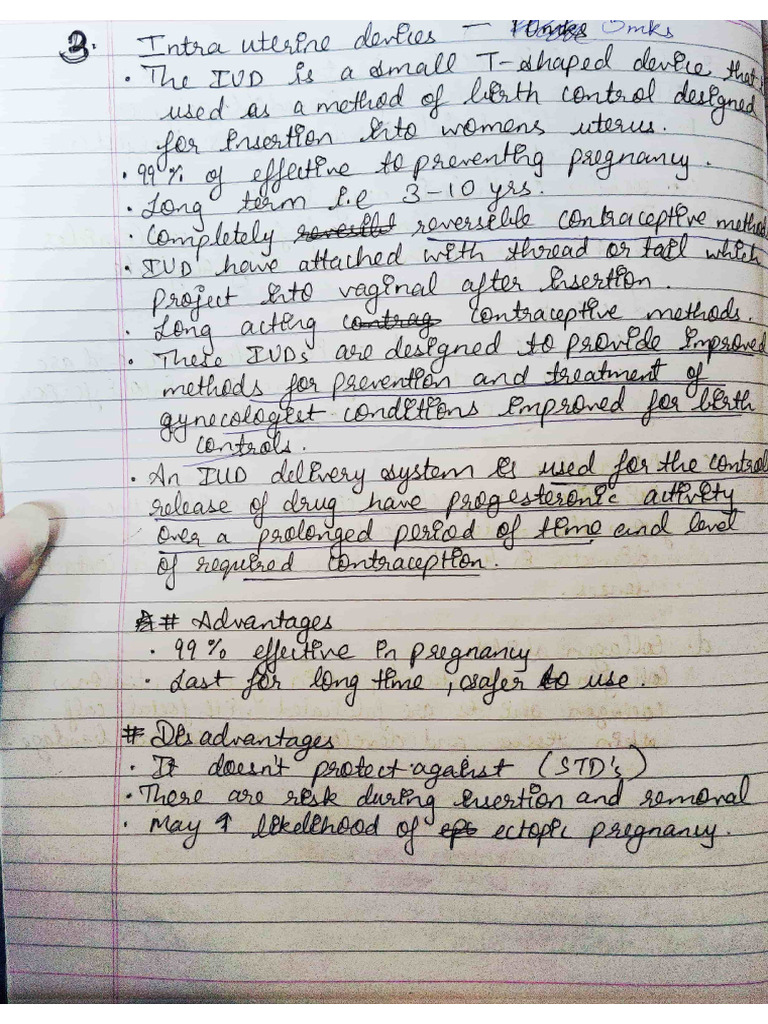 3. Intra uterine devices - 5mks
• The IUD is a small T-shaped device that
used as a method of birth control designed
for insertion into womens uterus.
• 99% of effective to preventing pregnancy.
• Long term i.e 3-10 yrs.
• Completely reversible contraceptive method
• IUD have attached with thread or tail which
project into vaginal after insertion.
• Long acting contraceptive methods.
• These IUDs are designed to provide improved
methods for prevention and treatment of
gynecologist conditions improved for birth
controls.
• An IUD delivery system is used for the control
release of drug have progesteronic activity
over a prolonged period of time and level
of required contraception.
# Advantages
• 99% effective in pregnancy
• Last for long time, safer to use.
# Disadvantages
• It doesn't protect against (STD's)
• There are risk during insertion and removal
• May ↑ likelihood of ectopic pregnancy.